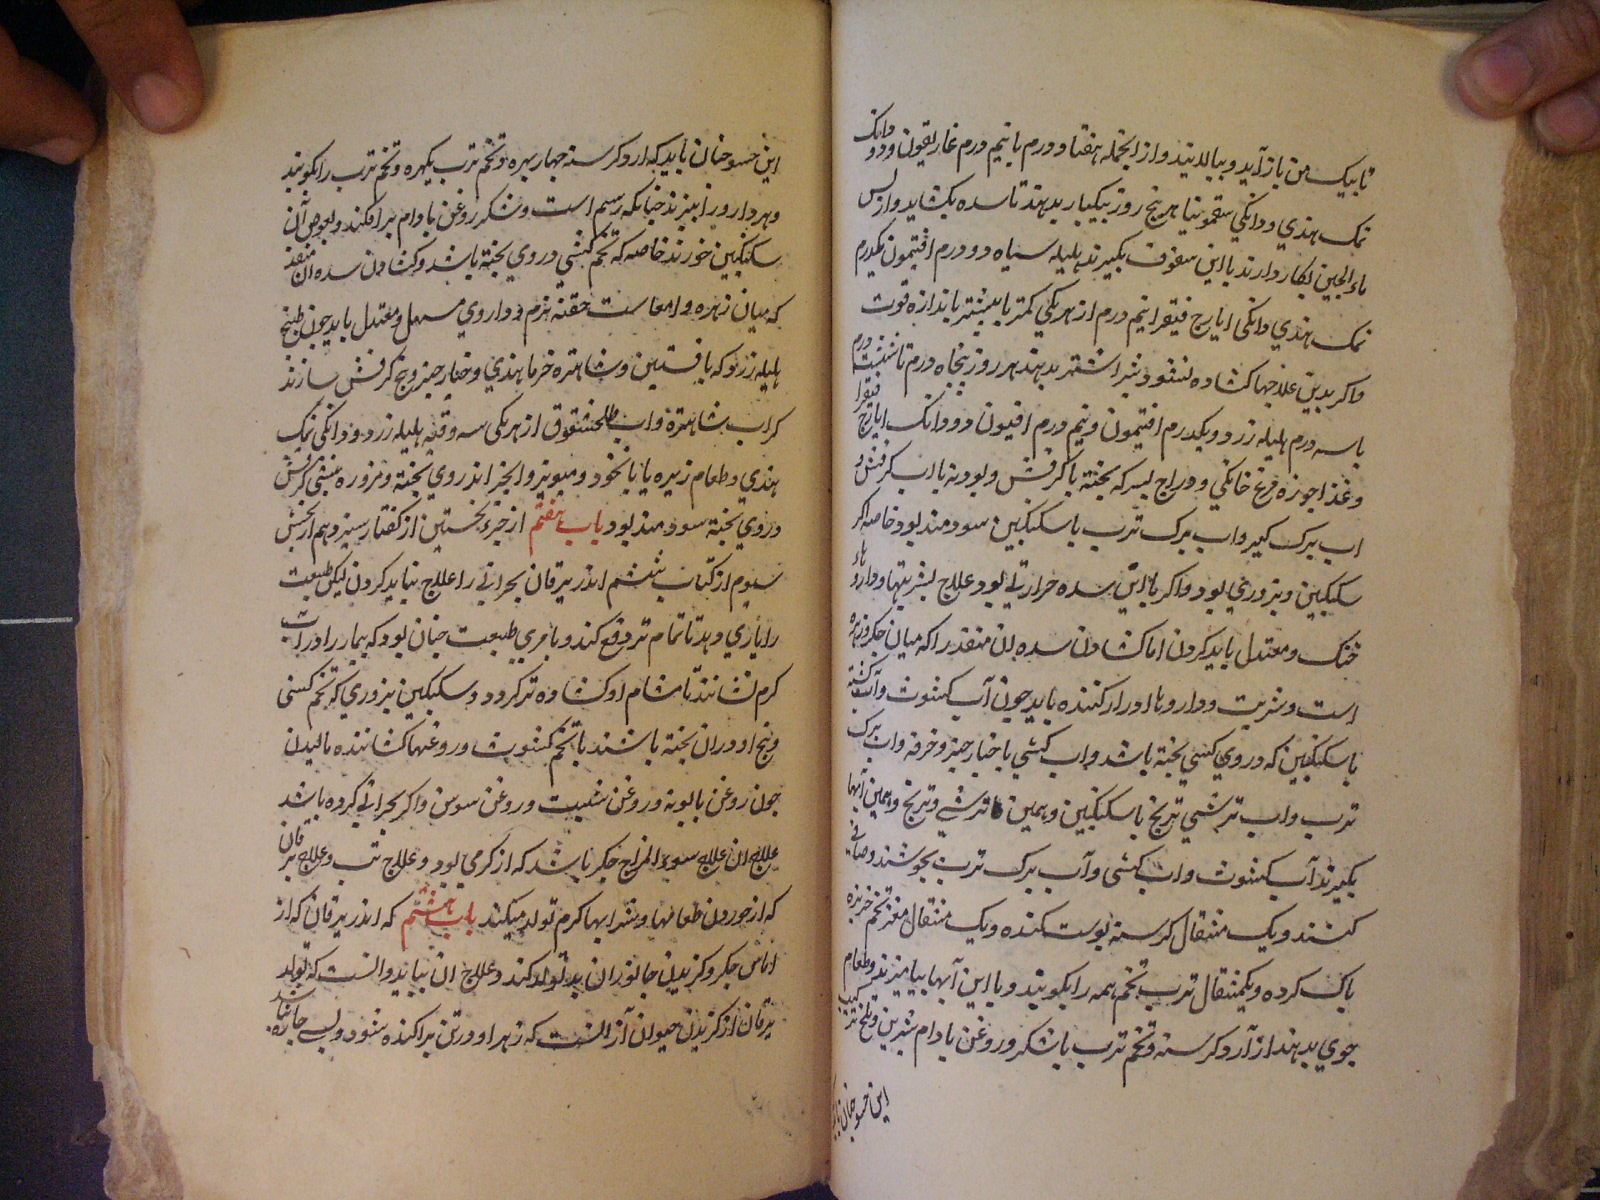 تا بیک من باز آید و بپالایند و از انجمله هفتاد درم با نیم درم غاریقون و دو دانک
نمک هندي و دانکي سقمونیا هر پنج روز یکبار بدهند تا سده بکشاید و از پس
ماء الجبن بکار دارند با این سفوف بکیرند هلیله سیاه دو درم افتیمون یکدرم
نمک هندي دانکی ایارج فیقرا نیم درم از هر یکي کمتر یا بیشتر باندازه قوت
و اکر بدین علاجها کشاده نشود شیر اشتر بدهند هر روز پنجاه درم تا شصت درم
با سه درم هلیله زرد و یکدرم افتیمون و نیم درم افیون دو دانک ایارج فیقرا
و غذا جوزه مرغ خانکي و دراج بسرکه پخته با کرفش و بودنه با اب کرفش و
اب برک کبر و اب برک ترب با سکنکبین سودمند بود خاصه اکر
سکنکبین بزوري بود و اکر با این سده حرارتي بود علاج بشربتها و داروهاء
خنک و معتدل باید کردن اما کشادن سده ان منفذ را که میان جکر و زهره
است و شربت و داروها ادرار کننده باید چون آب کشوث و آب کشنه
با سکنکبین که در وي کسني پخته باشد و اب کسني با خیار چنبر و خرفه و اب برک
ترب و اب ترشي ترنج با سکنکبین و همین ترشي و ترنج و همین آبها
بکیرند آب کشوث و اب کسني و آب برک ترب بجوشند و صافي
کنند و یک مثقال کرسنه پوست کنده و یک مثقال مغز تخم خربزه
پاک کرده و یکمثقال ترب تخم همه را بکوبند و با این آبها بیامیزند و طعام
جوي بدهند از آرد کرسنه و تخم ترب با شکر و روغن بادام شیرین و تلخ ترکیب
این حسو چنان باید
این حسو چنان باید که ارد کرسنه چهار بهره و تخم ترب یکبهره و تخم ترب را بکوبند
و هر دارو را ببزند چنانکه رسم است و شکر و روغن بادام برافکنند و بعوض آن
سکنکبین خورند خاصه که تخم کسني در وي پخته باشد و کشادن سده ان منفذ
که میان زهره و امعاست حقنه نرم و داروي مسهل و معتدل باید چون طبیخ
هلیله زرد که با فستین و شاهتره خرما هندي و خیار چنبر و بیخ کرفش سازند
کراب شاهتره و اب طلحشقوق از هر یکی سه وقیه هلیله زرد و دانکی نمک
هندي و طعام زیره با یا نخود و میویز و انجیر اندر وي پخته و مزوره کرفش
در وي پخته سودمند بود باب هفتم از جزء نخستین از کفتار سیزدهم از بخش
سوم از کتاب ششم اندر یرقان بحراني را علاج نباید کردن لیکن طبیعت
را یاري دهند تا تمام تر دفع کند و یاري طبیعت چنان بود که بیمار را در اب
کرم نشانند تا مشام او کشاده تر کردد و سکنکبین بزوري که تخم کسني
و بیخ او دران پخته باشند با تخم کشوث و روغنها کشاننده مالیدن
چون روغن بابونه و روغن شبت و روغن سوسن و اکر بحراني کرده باشد
علاج ان علاج سوء المزاج جکر باشد که از کرمي بود و علاج تب و علاج یرقان
که از خوردن طعامها و شرابها کرم تولد میکند باب هشتم که اندر یرقان که از
اماس جکر و کزیدن جانوران بد تولد کند و علاج ان بباید دانست که تولد
یرقان از کزیدن حیوان آن الست که زهر او در تن پراکنده شود و بسي جاره باشد